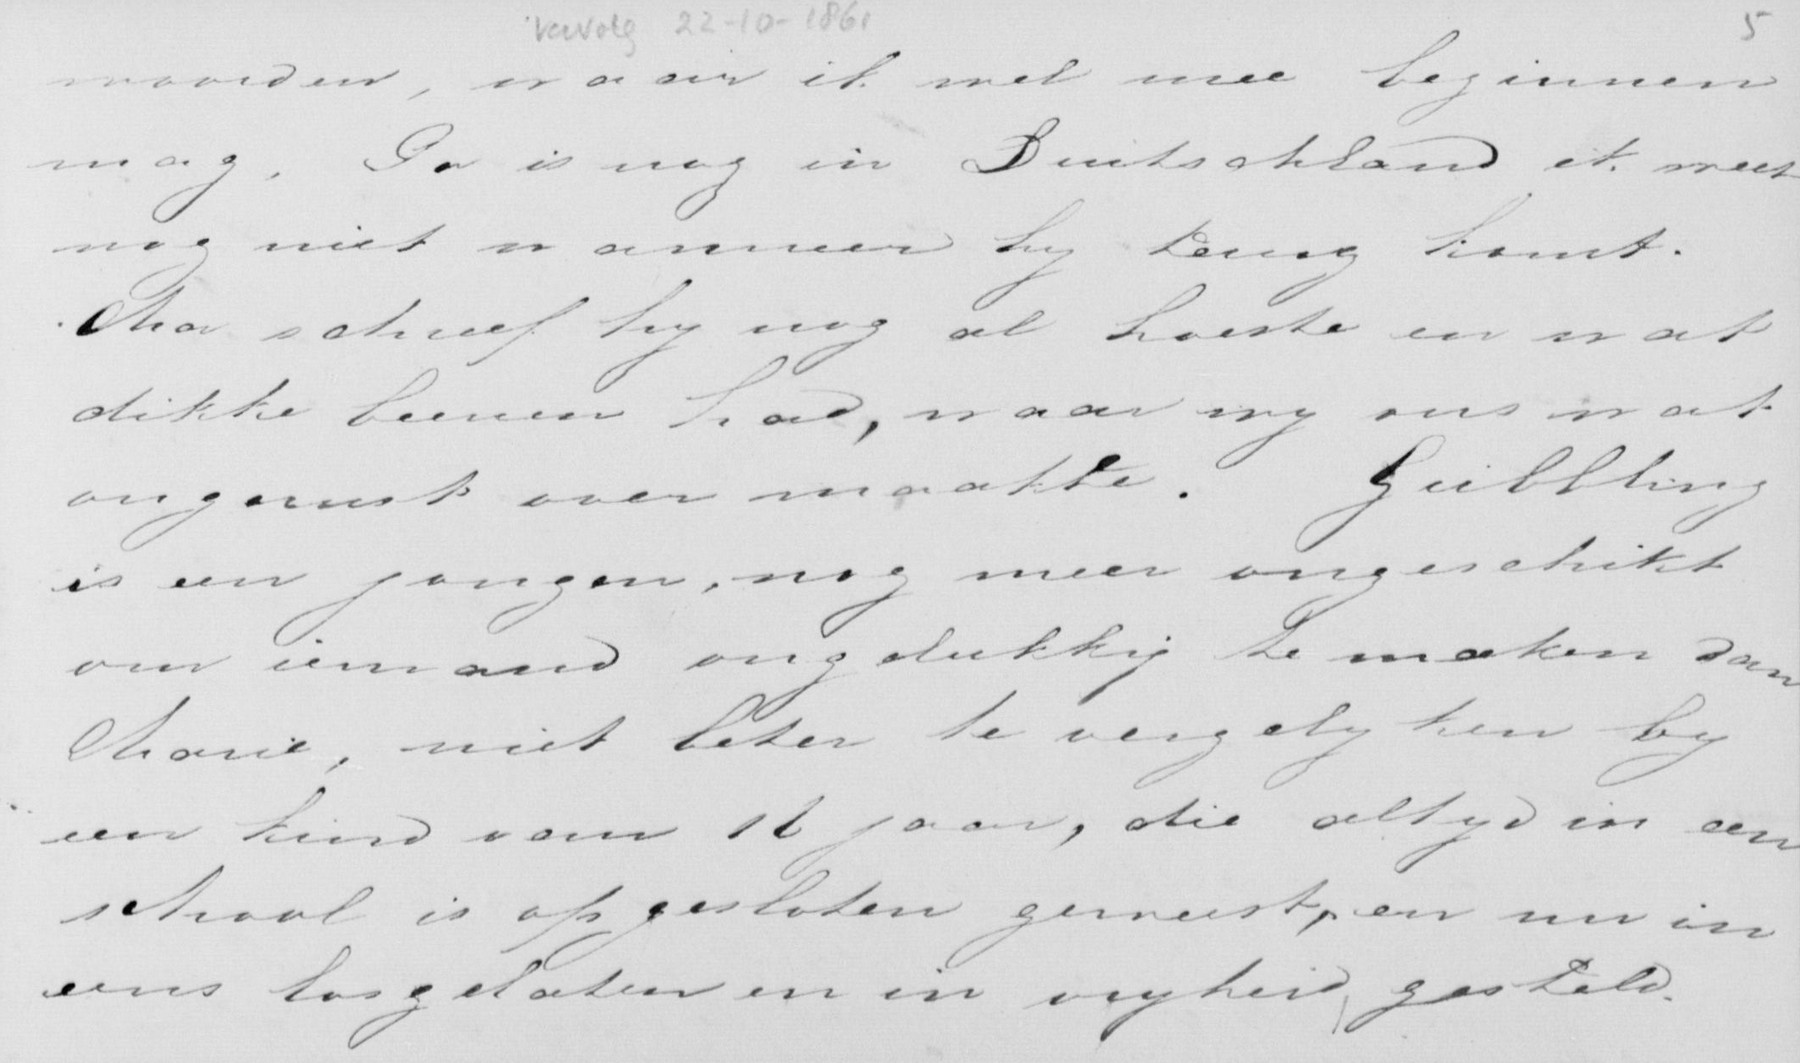 vervolg 22-10-1861
5
woorden, waar ik wel mee beginnen
mag. Pa is nog in Duitschland ik weet
nog niet wanneer hy terug komt.
Ma schreef hy nog al hoeste en wat
dikke beenen had, waar wy ons wat
ongerust over maakte.
is een jongen, nog meer ongeschikt
om iemand ongelukkig te maken dan
Marie, niet beter te vergelyken by
een kind van 16 jaar, die altyd in een
school is opgesloten geweest, en nu in
eens losgelaten en in vryheid gesteld.